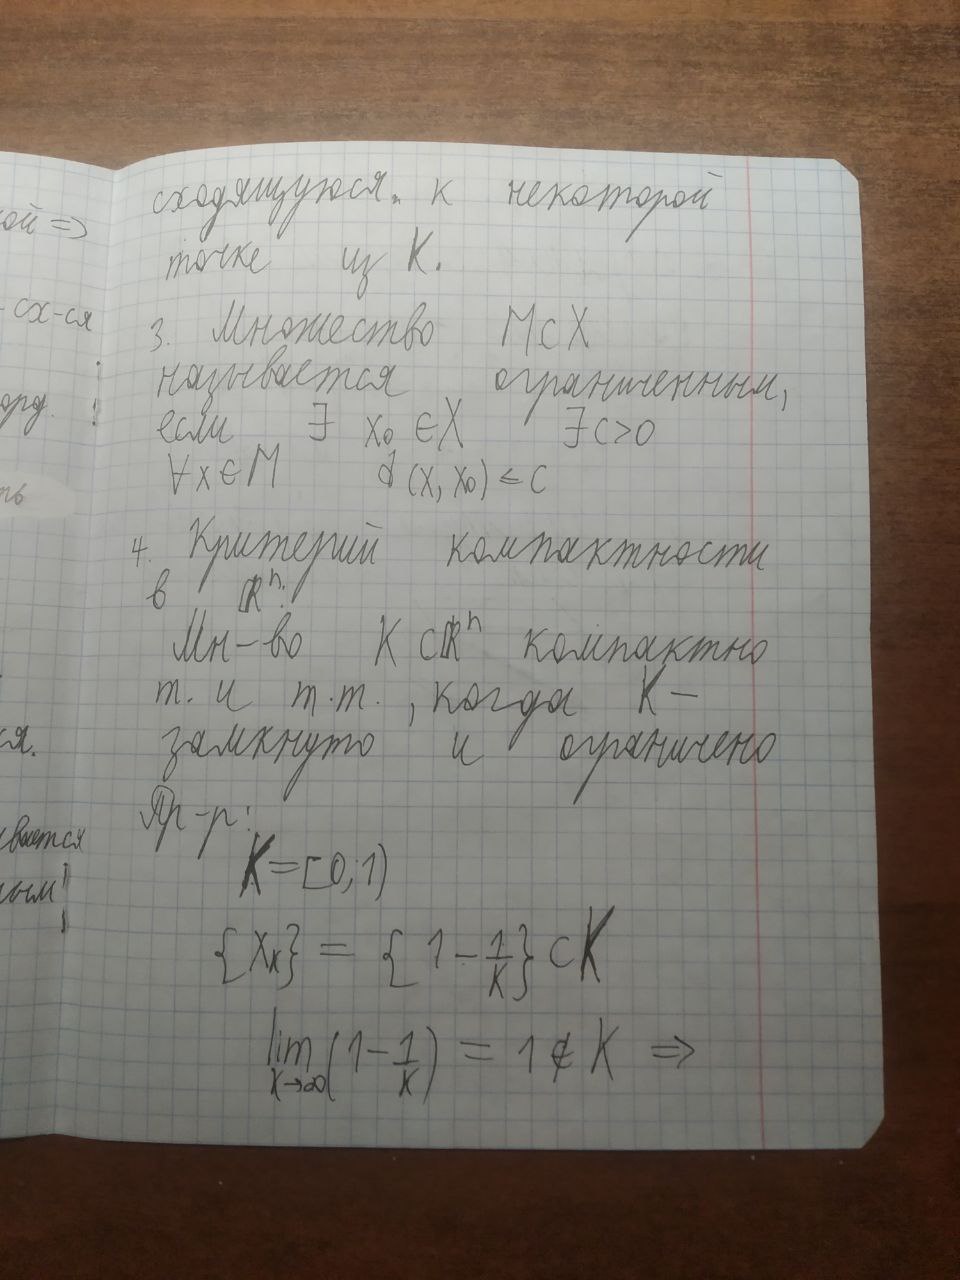 ой =>
- сх-ся
орд.
ть
ся.
вается
ным
сходящуюся. к некоторой
точке из K.
3. Множество M⊂X
называется ограниченным,
если ∃ x₀ ∈X ∃ C>0
∀x∈M d(x, x₀) ≤ C
4. Критерий компактности
в ℝⁿ:
Мн-во K ⊂ℝⁿ компактно
т. и т.т., когда K –
замкнуто и ограничено
Пр-р:
K=[0;1)
{xₖ} = {1 - 1/k} ⊂ K
lim k→∞ (1 - 1/k) = 1 ∉ K ⇒